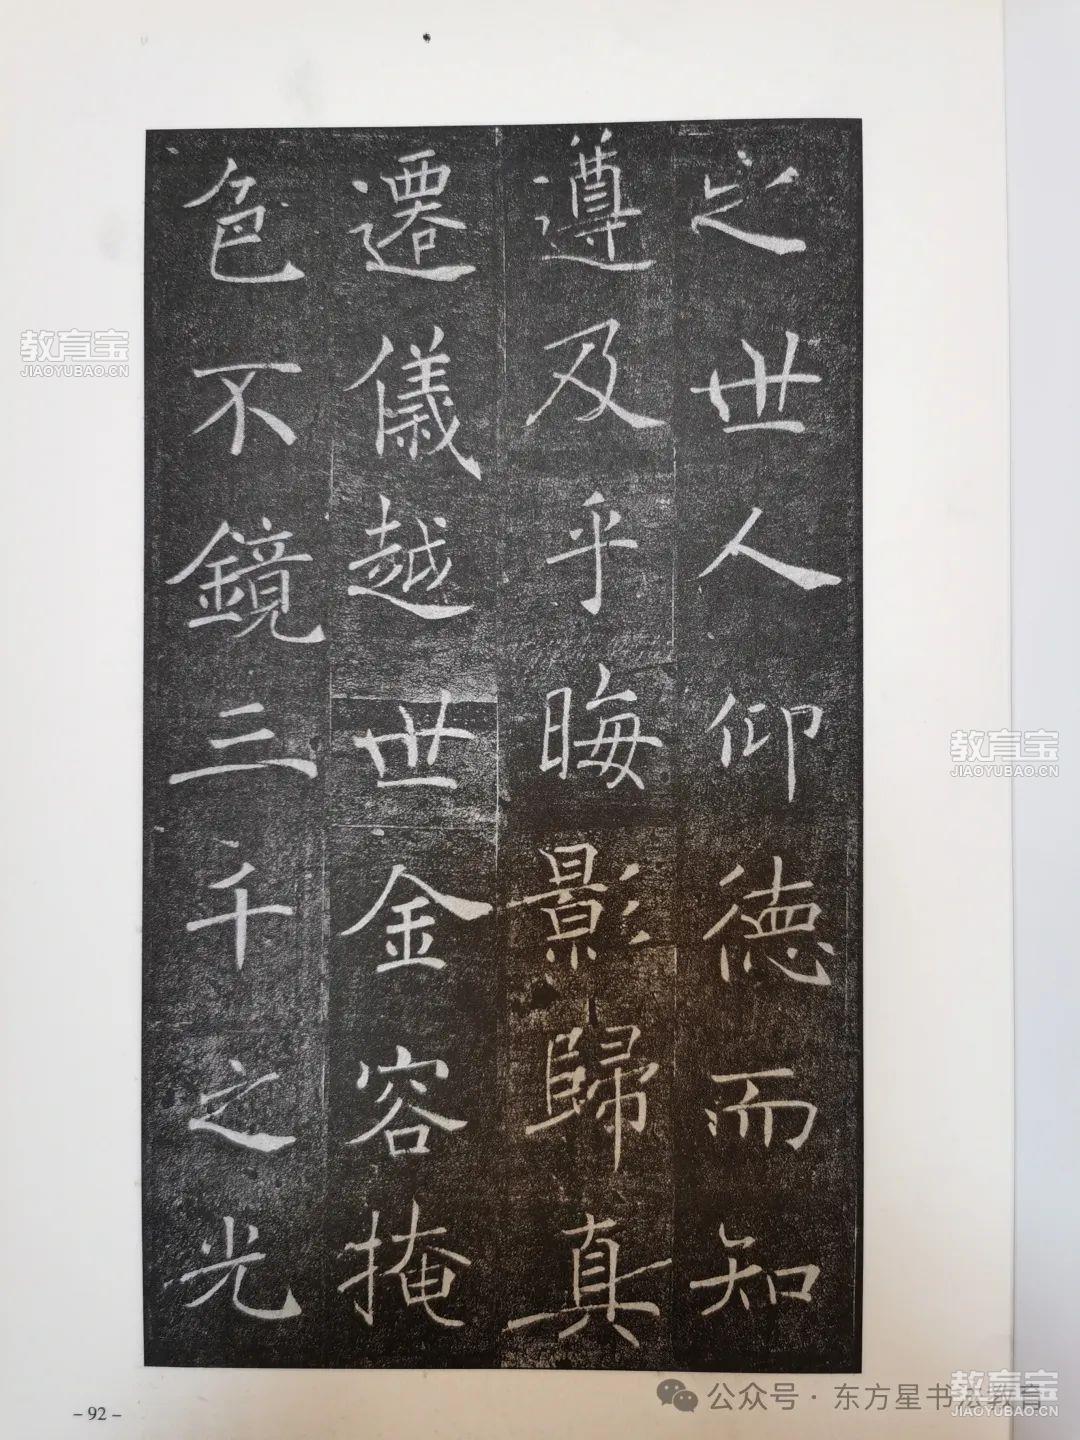 之世人仰德而知
遵及乎晦影歸真
遷儀越世金容掩
色不鏡三千之光
教育宝
JIAOYUBAO.CN
教育宝
JIAOYUBAO.CN
公众号·东方星书法教育
教育宝
JIAOYUBAO.CN
-92-